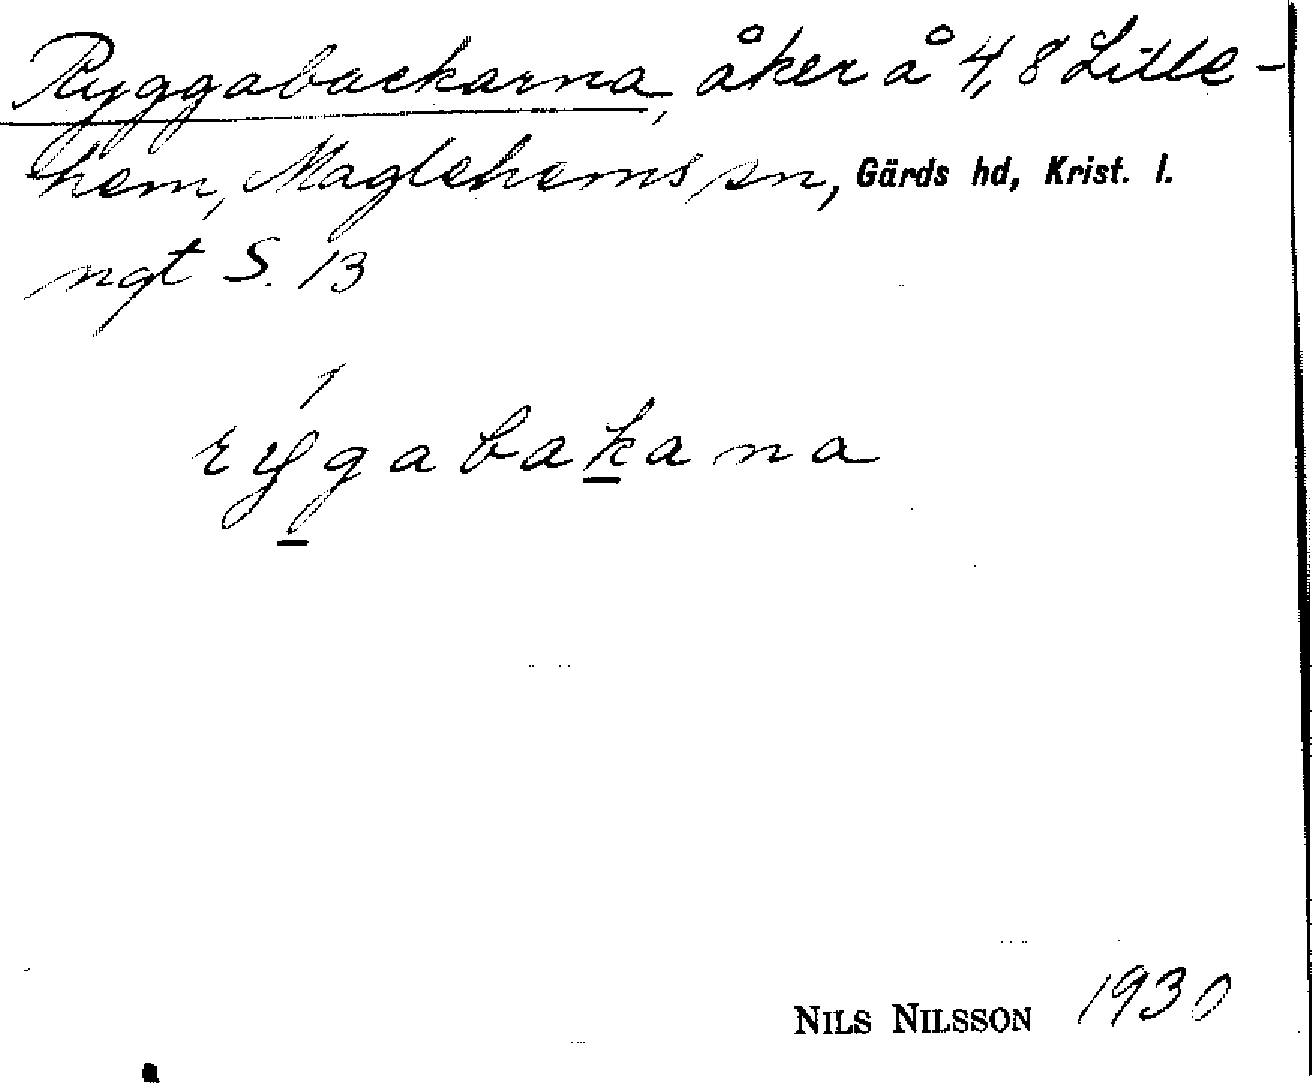 Ryggabackarna, åker å 4,8 Lille-
hem, Maglehems sn, Gärds hd, Krist. l.
ngt S. 13
rygabakana
NILS NILSSON 1930